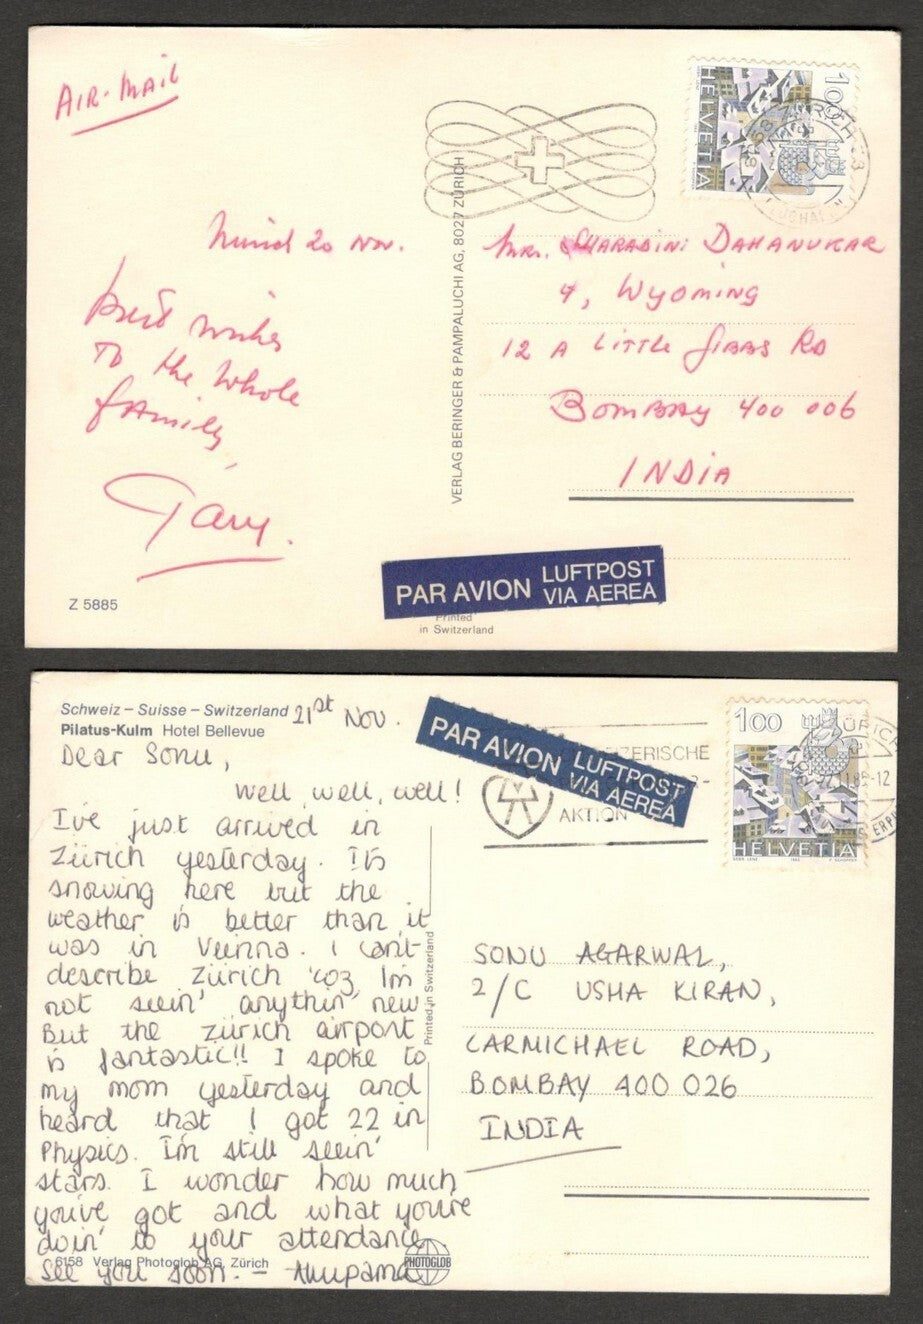 AIR-MAIL
HELVETIA
100
ZÜRICH
VERLAG BERINGER & PAMPALUCHI AG, 8027 ZÜRICH
20 Nov.
Best wishes
To the whole
family
Mrs. SHARADINI DAHANUKAR
4, Wyoming
12 A LITTLE GIBBS RD
BOMBAY 400 006
INDIA
PAR AVION LUFTPOST
VIA AEREA
Z 5885
Printed
in Switzerland
Schweiz – Suisse – Switzerland 21st Nov.
Pilatus-Kulm Hotel Bellevue
Dear Sonu,
Well, well, well!
I've just arrived in
Zürich yesterday. It's
snowing here but the
weather is better than it
was in Vienna. I can't
describe Zürich 'coz I'm
not seein' anythin' new.
But the Zürich airport
is fantastic!! I spoke to
my mom yesterday and
heard that I got 22 in
Physics. I'm still seein'
stars. I wonder how much
you've got and what you're
doin' to your attendance
See you soon. – Anupama
6158 Verlag Photoglob AG, Zürich
PHOTOGLOB
Printed in Switzerland
PAR AVION LUFTPOST
VIA AEREA
AKTION
100
HELVETIA
ZÜRICH
SONU AGARWAL,
2/C USHA KIRAN,
CARMICHAEL ROAD,
BOMBAY 400 026
INDIA